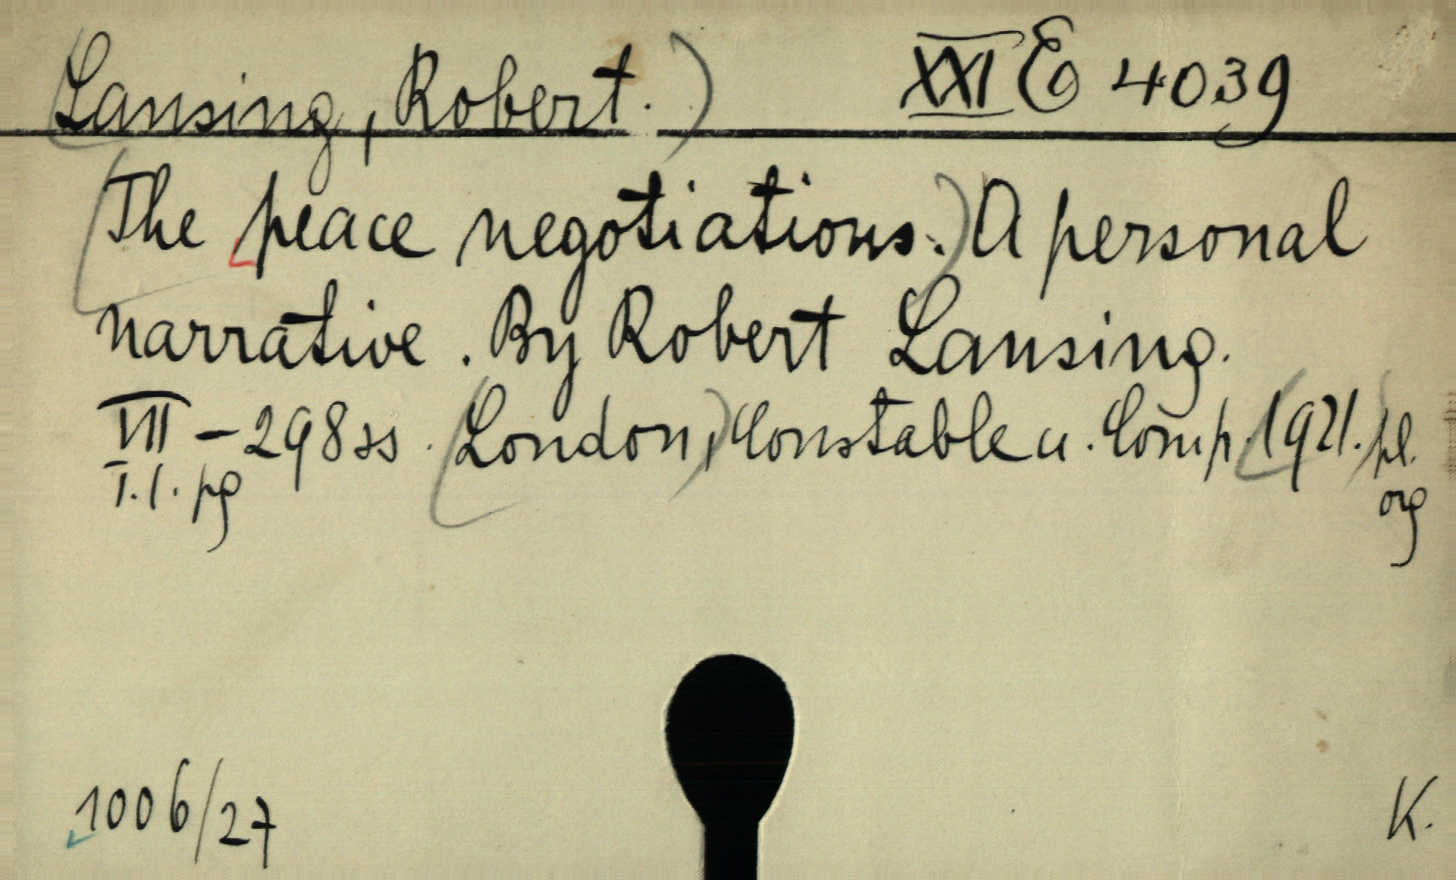 Lansing, Robert.) XXI E 4039
(The peace negotiations.) A personal
narrative. By Robert Lansing.
VII - 298 ss. (London,) Constable u. Comp. (1921.) pl.
T. l. pg org
1006/27 K.